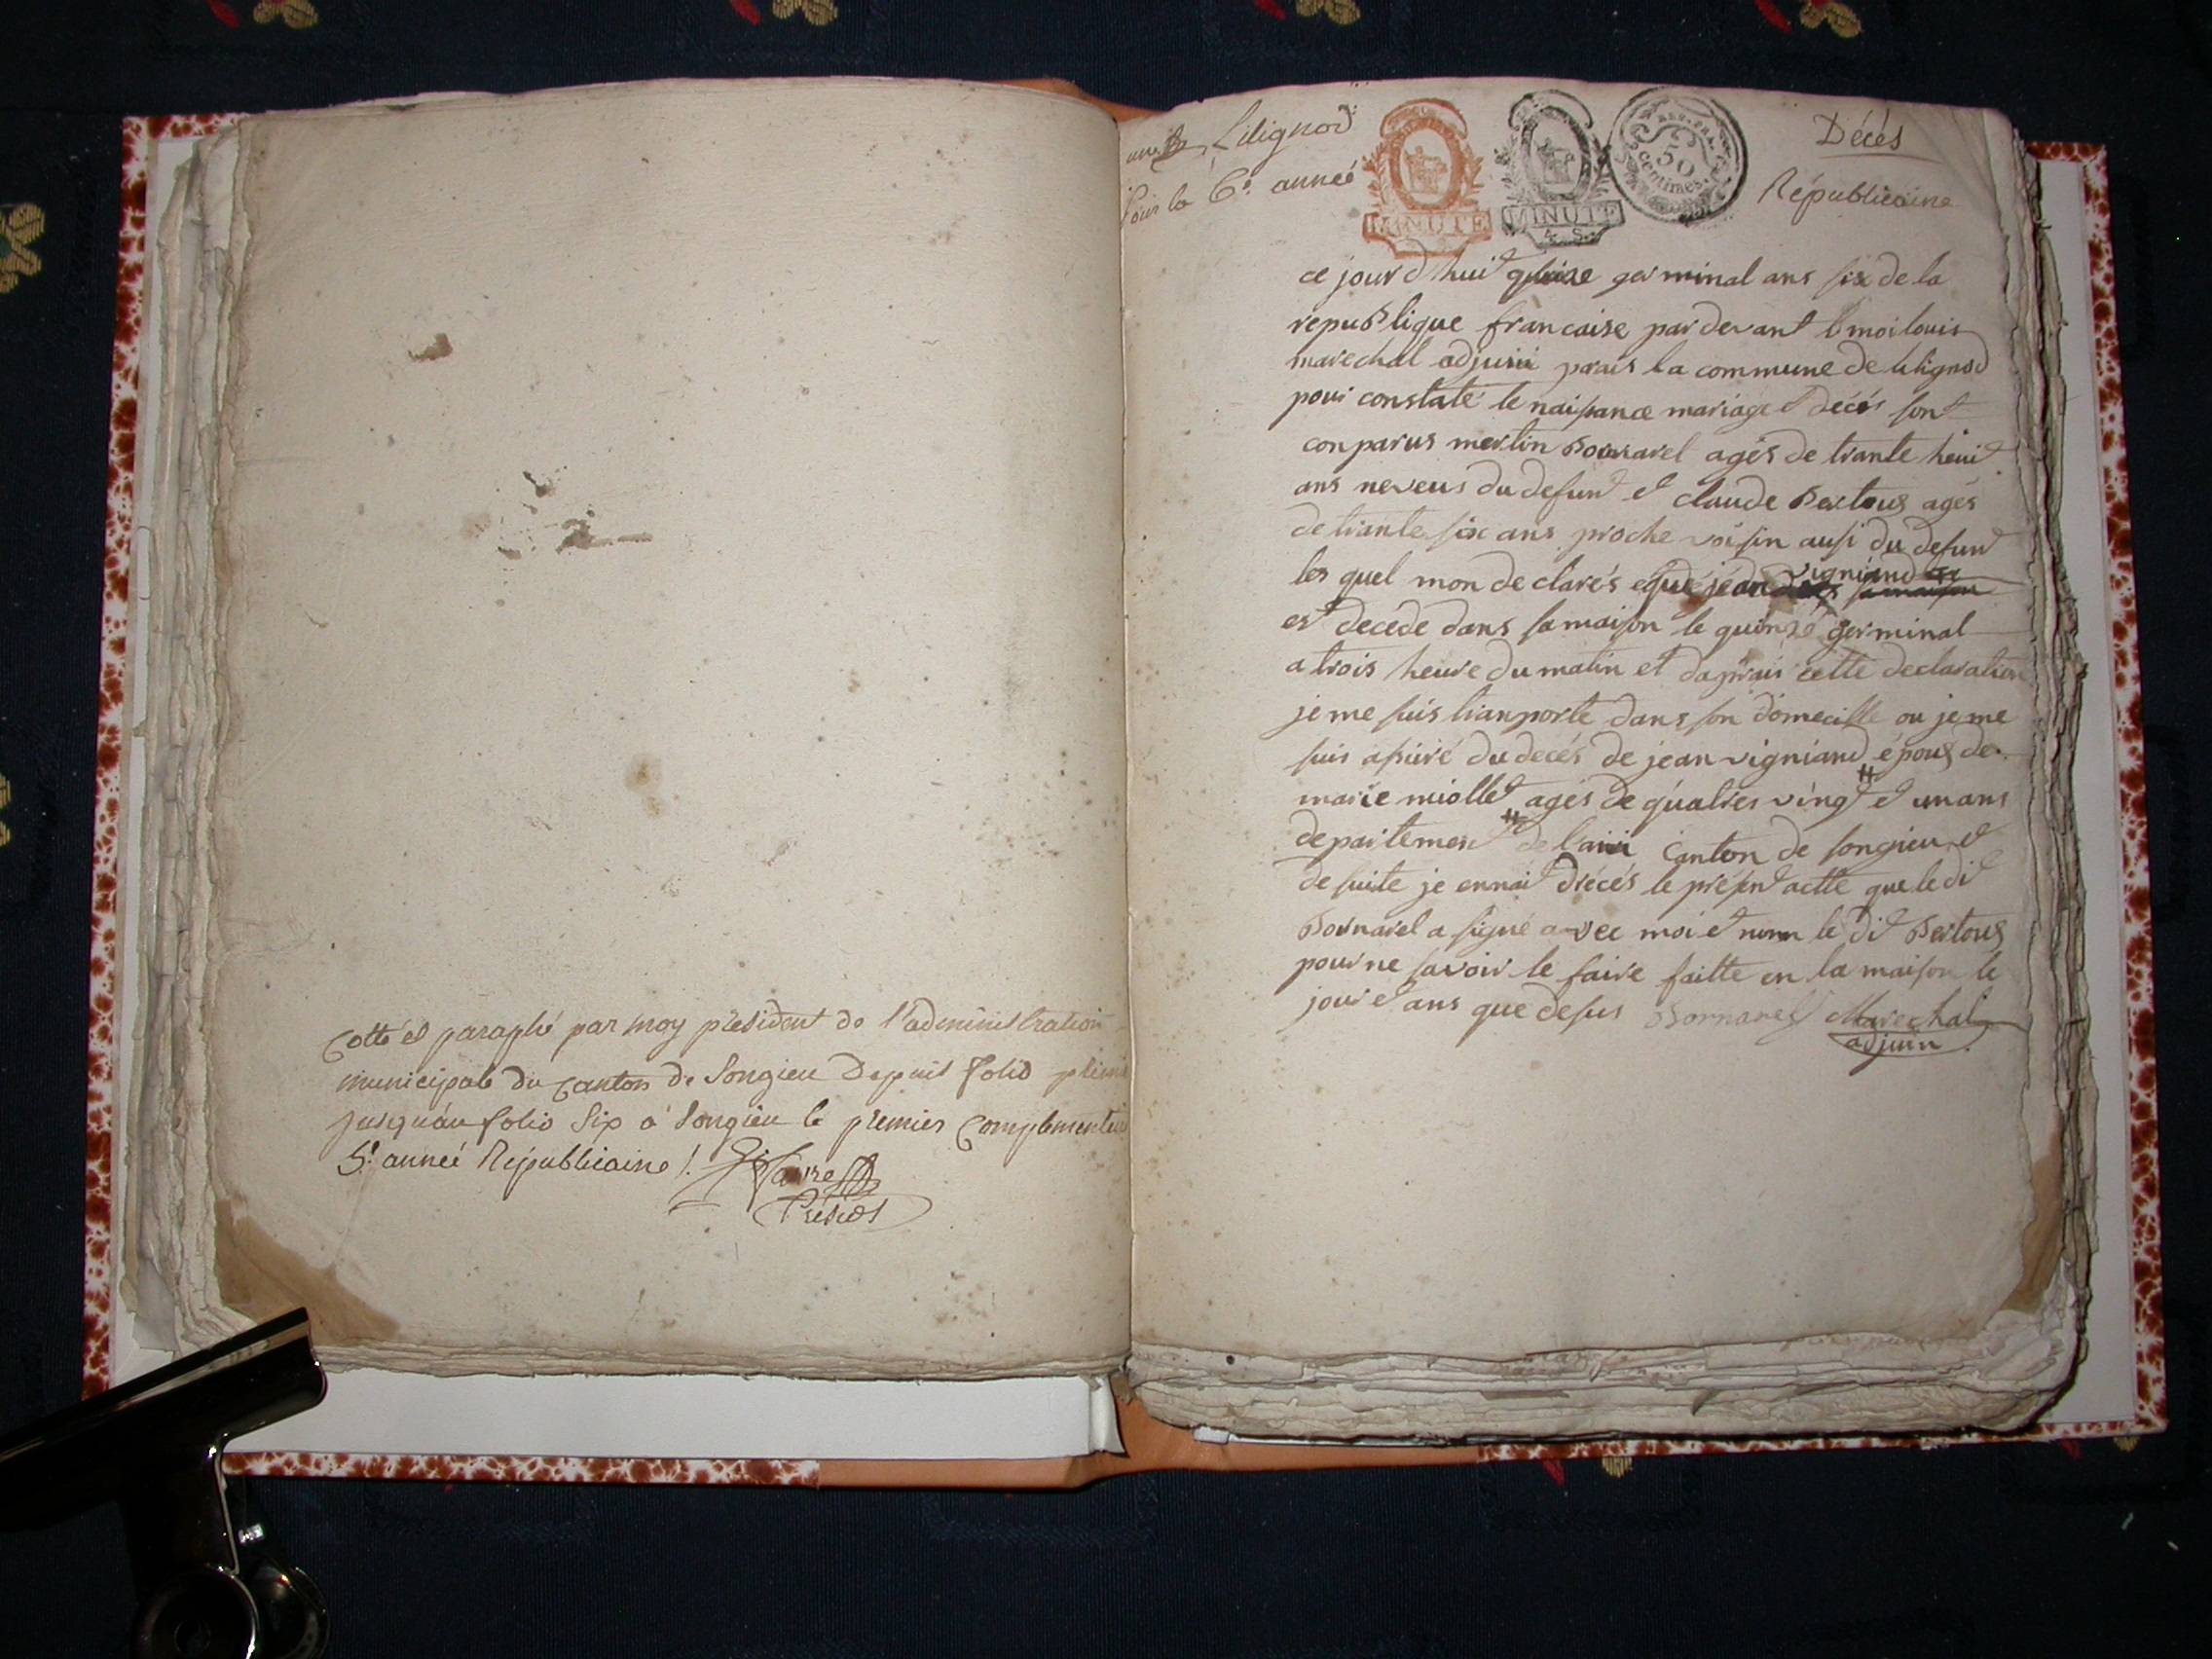 Cotté et paraphé par moy président de l'administration
municipale du Canton de Songieu Depuis folio
jusqu'au folio Six a Songieu le premier Complementaire
5e. année Républicaine /.
Présidt
Lilignod
Pour la 6e. année
MINUTE
MINUTE
4. S.
REP. FRA.
50
centimes.
Décès
Républicaine
ce jour d'huit germinal ans six de la
republique francaise par devant moi louis
marechal adjuin prais la commune de lilignod
pour constaté le naissance mariage et décès sont
conparus mertin Bornarel agés de trante heuit
ans neveus du defunt et claude Bertous agés
de trante six ans proche voisin ausi du defunt
les quel mon declarés que jean vigniand
est decede dans sa maison le quinze germinal
a trois heure du matin et daprais cette declaration
je me suis tranporte dans son domecille ou je me
suis assuré du decés de jean vigniand époux de
marie miollet agés de quatres vingt et un ans
departement de lain Canton de songieu et
de suite je ennai drecés le présent actte que le dit
Bornarel a signé avec moi et nonn le dit Bertous
pour ne savoir le faire faitte en la maison le
jour et ans que desus Bornarel Marechal
adjuin